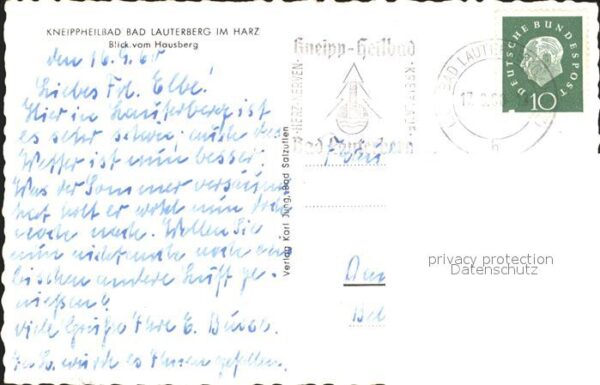 KNEIPPHEILBAD BAD LAUTERBERG IM HARZ
Blick vom Hausberg
den 16.9.60
Liebes Frl. Elbe!
Hier in Lauterberg ist
es sehr schön. auch das
Wetter ist nun besser.
Was der Sommer versäumt
hat holt er wohl nun doch
noch nach. Wollen Sie
nun nicht mehr noch ein
bischen andere Luft ge-
nießen?
viele Grüße Ihre E.
würde es Ihnen gefallen.
Verlag Karl Jung, Bad Salzuflen
Kneipp-Heilbad
HERZ-NERVEN
KREISLAUF
Bad Lauterberg
BAD LAUTERBERG
h
DEUTSCHE BUNDESPOST
10
privacy protection
Datenschutz